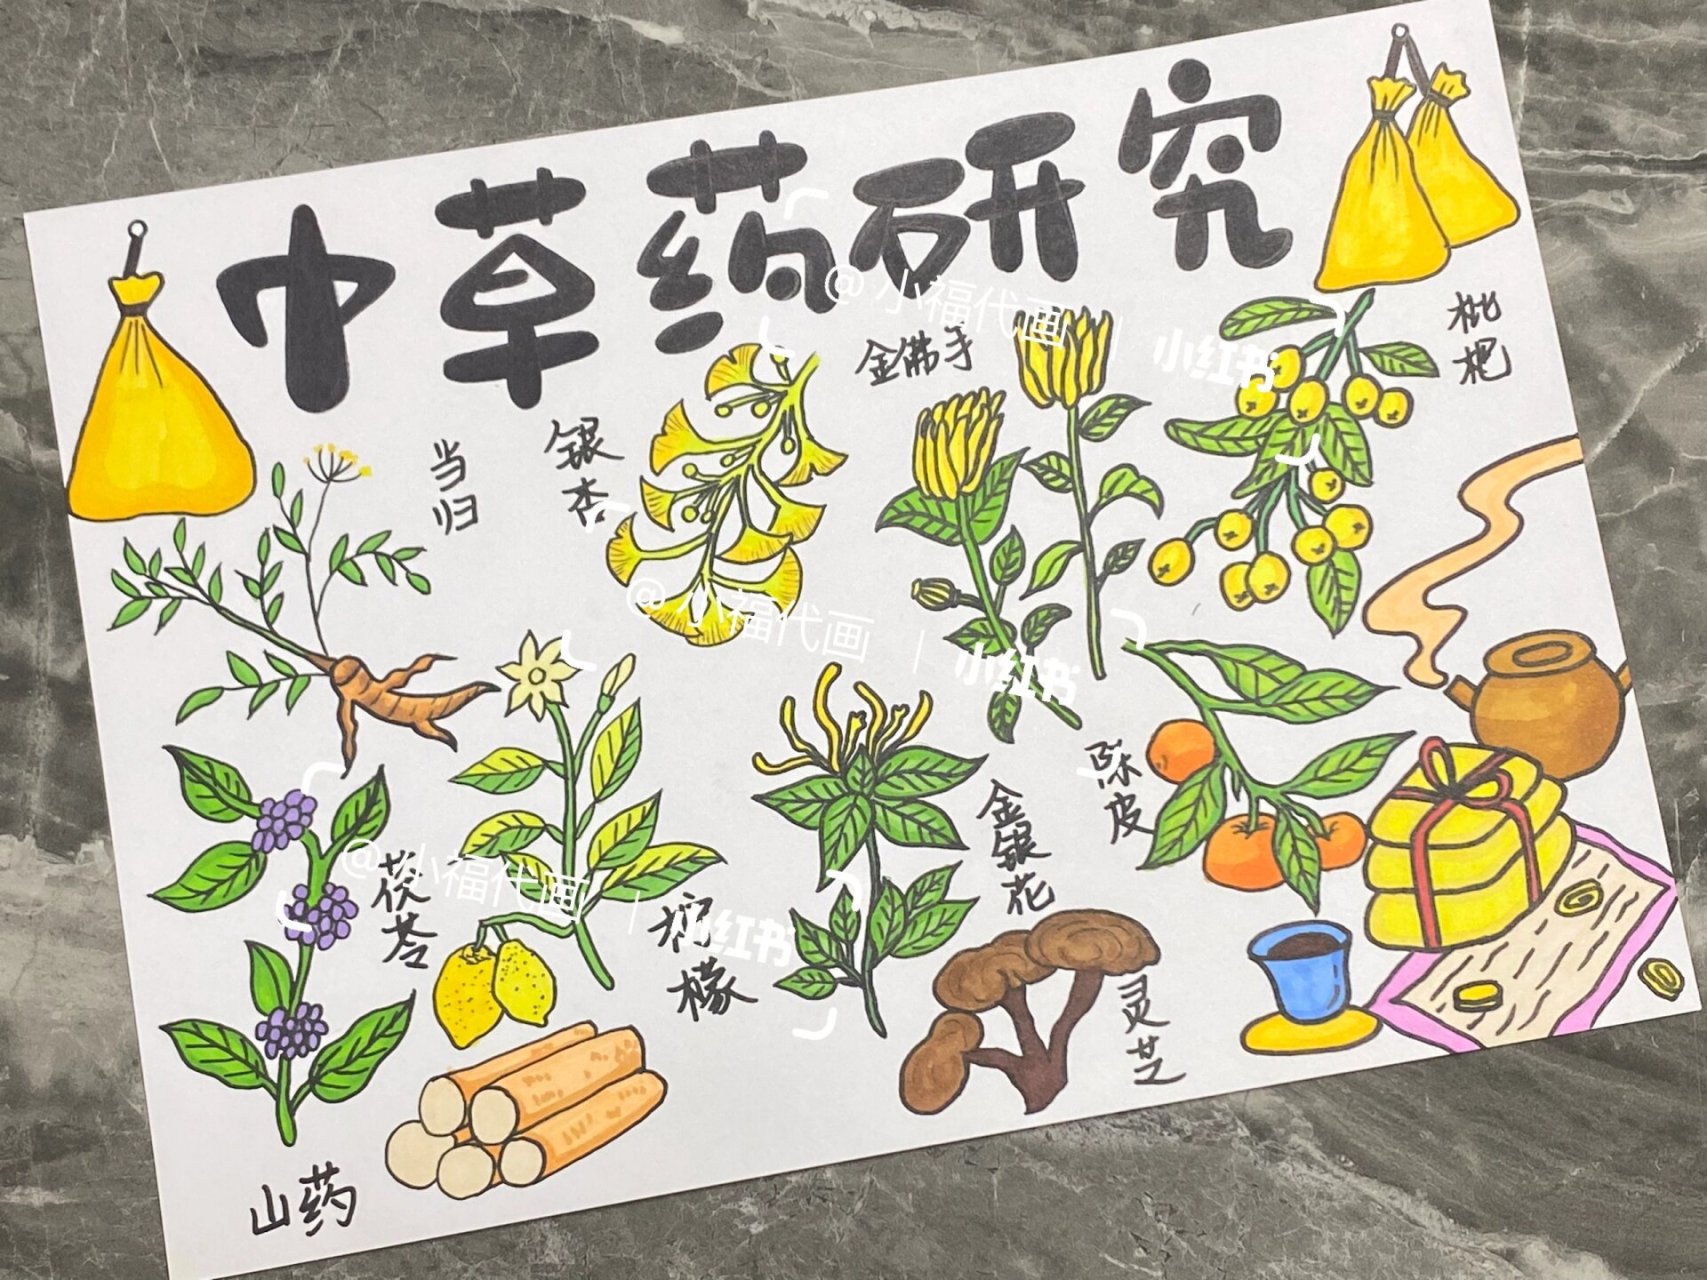 中草药研究
枇杷
金佛手
银杏
当归
陈皮
金银花
茯苓
柠檬
灵芝
山药
@小福代画 | 小红书
@小福代画 | 小红书
@小福代画 | 小红书